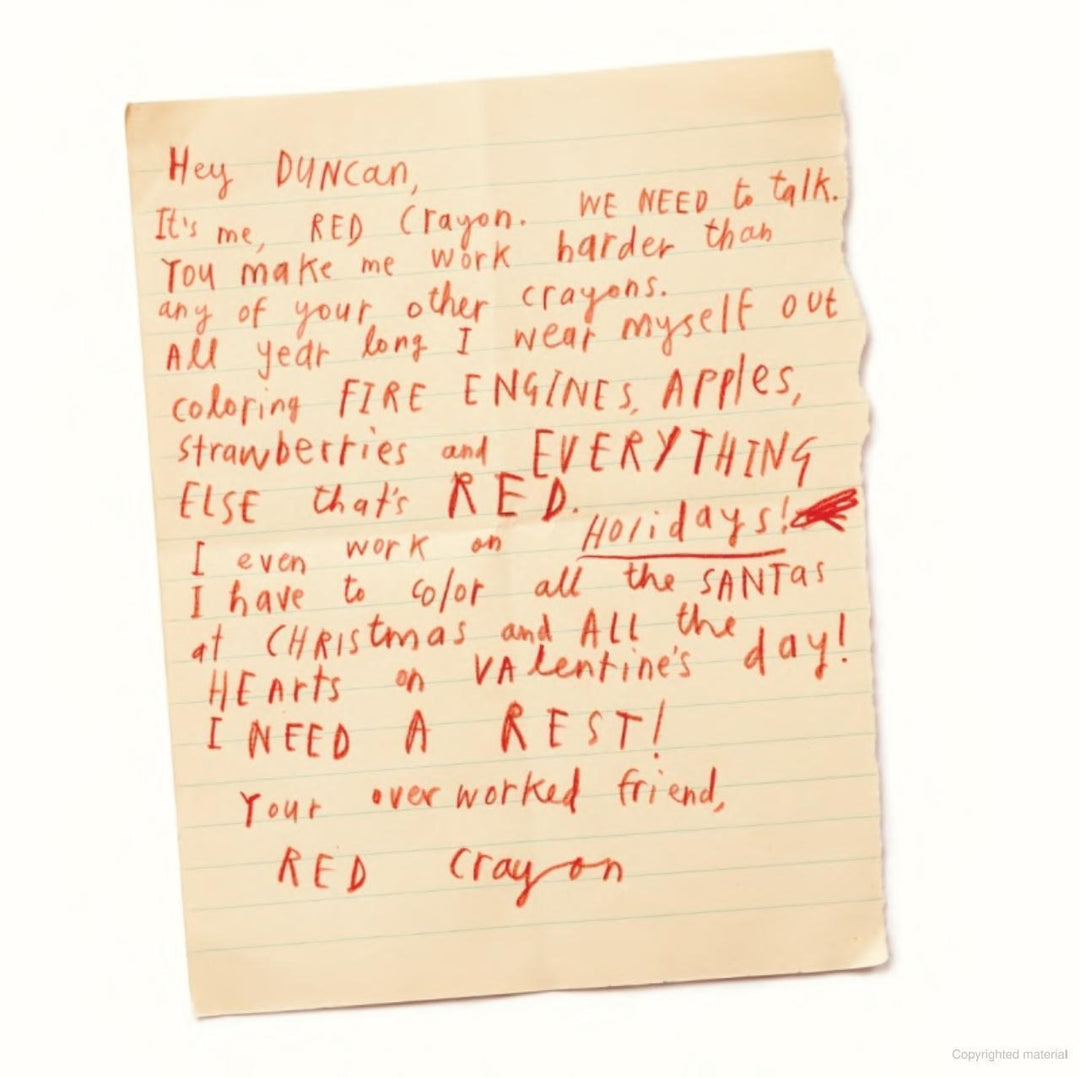 Hey DUNCan,
It's me, RED Crayon. WE NEED to talk.
You make me work harder than
any of your other crayons.
All year long I wear myself out
coloring FIRE ENGINES, Apples,
strawberries and EVERYTHING
ELSE that's RED.
I even work on Holidays!
I have to color all the SANTas
at CHRIStmas and ALL the
HEArts on VAlentine's day!
I NEED A REST!
Your overworked friend,
RED Crayon
Copyrighted material